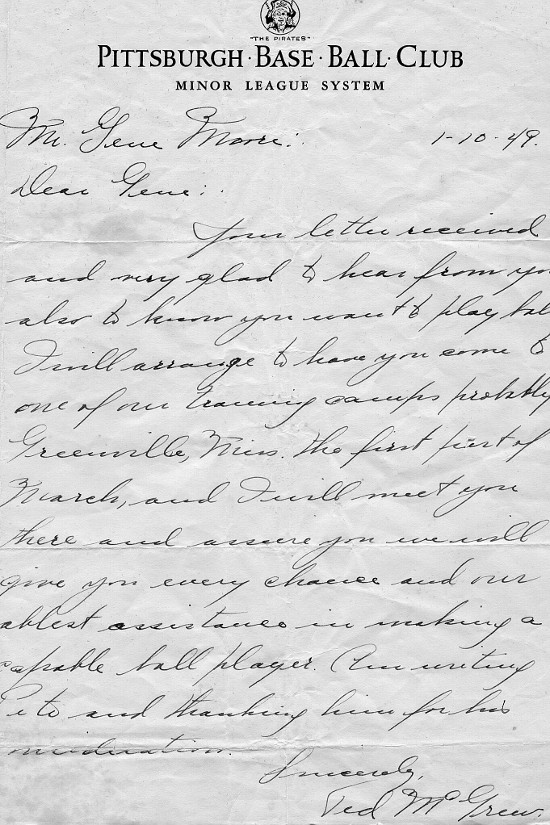 "THE PIRATES"
PITTSBURGH·BASE·BALL·CLUB
MINOR LEAGUE SYSTEM
Mr. Gene Moore: 1-10-49.
Dear Gene:
Your letter received
and very glad to hear from you
also to know you want to play ball
I will arrange to have you come to
one of our training camps probably
Greenville, Miss. the first part of
March, and I will meet you
there and assure you we will
give you every chance and our
ablest assistance in making a
capable ball player. Am writing
Pete and thanking him for his
consideration.
Sincerely,
Ted McGrew.